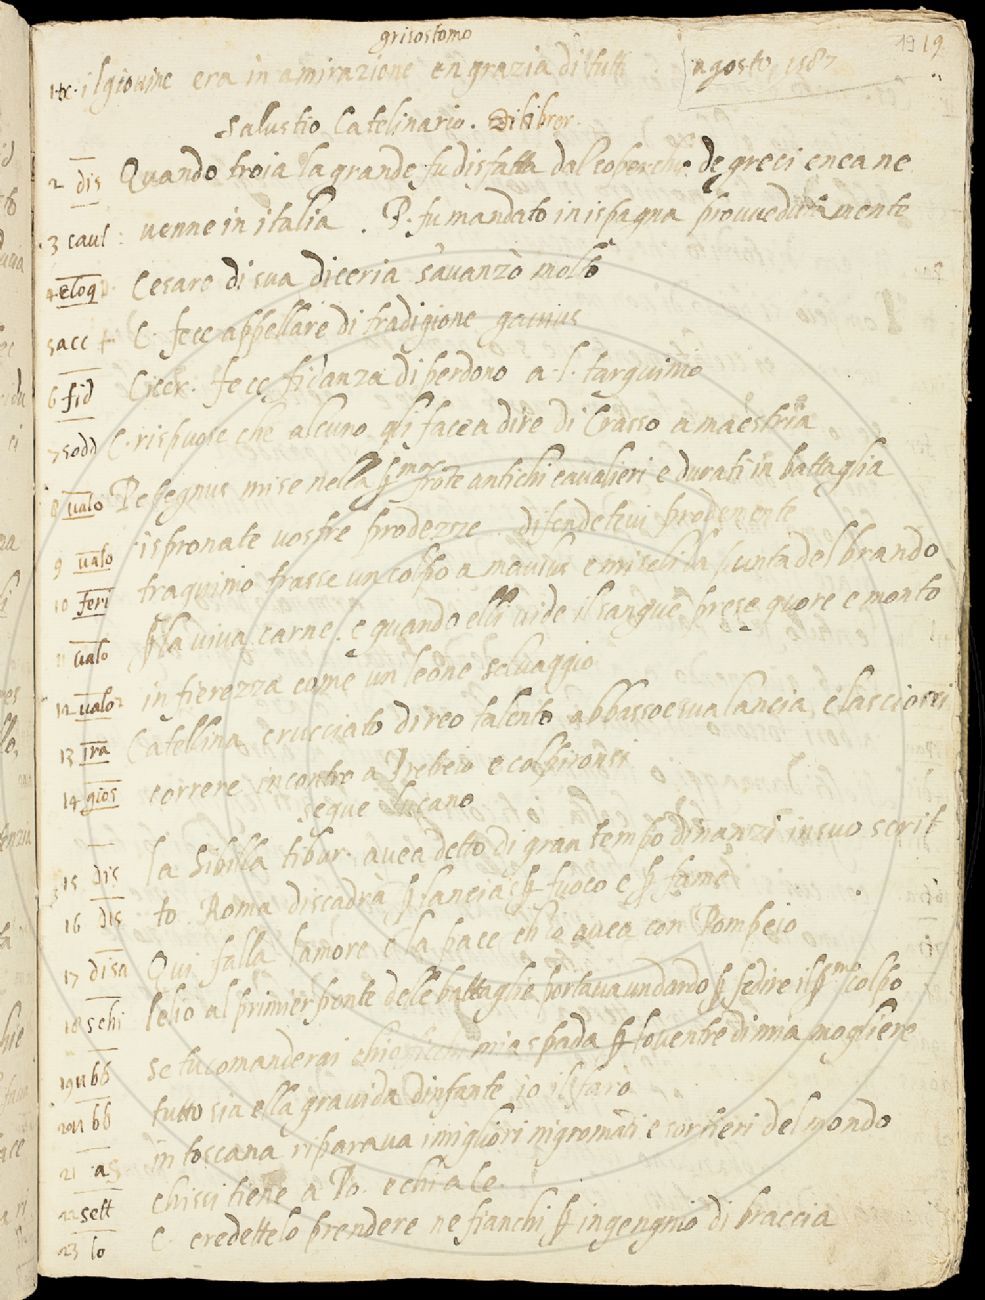 grisostomo
19 19
1 il giovine era in amirazione en grazia di tutti agosto 1587
Salustio Catelinario.
2 dis Quando troia la grande fu disfatta dal de greci enea ne
3 caul venne in italia. P. fu mandato in ispagna provvedutamente
4 eloq Cesare di sua diceria s'avanzò molto
5 acc C. fece appellare di tradigione
6 fid Cicer. fece fidanza di perdono a .l. tarquinio
7 sodd C. rispuose che alcuno gli facea dire di Crasso a maestria
8 valo Petregnus mise nella antichi cavalieri e durati in battaglia
9 valo ispronate vostre prodezze. difendetevi prodemente
10 feri traquinio trasse un colpo a e miseli la punta del brando
11 valo ꝑ la viva carne. e quando elli vide il sangue prese quore e monto
12 valor in fierezza come un leone selvaggio
13 ira Catellina crucciato di reo talento abbassoe sua lancia e lasciossi
14 gios correre incontro a Prebeio e colpironsi
segue lucano
15 dis la Sibilla tibur. avea detto di gran tempo dinanzi in suo scrit
16 dis to. Roma discadrà ꝑ lancia ꝑ fuoco e ꝑ fame
17 disa Qui falla l'amore e la pace ch lo avea con Pompeio
18 schi lelio al primier fronte delle battaglie portava un dardo ꝑ fedire il pmo colpo
19 ubb se tu comanderai mia spada ꝑ lo ventre di mia mogliere
20 ubb tutto sia ella gravida d'infante io il farò
21 in toscana riparava i migliori nigromāti e sortieri del mondo
22 sett chi si tiene a Po. e chi a Ce.
23 lo C. credettelo prendere ne fianchi ꝑ ingengnio di braccia